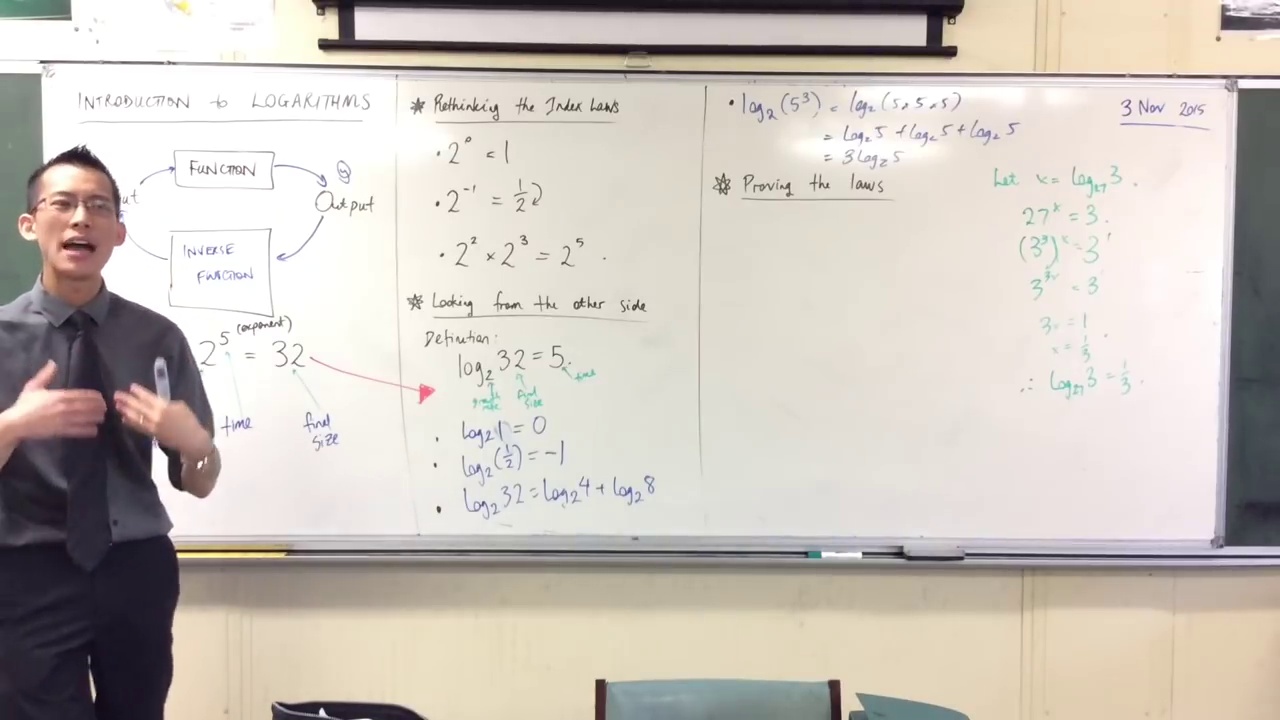 INTRODUCTION to LOGARITHMS
FUNCTION
y
ut
Output
INVERSE
FUNCTION
(exponent)
2⁵ = 32
time
final
size
* Rethinking the Index Laws
• 2⁰ = 1
• 2⁻¹ = 1/2
• 2² × 2³ = 2⁵.
* Looking from the other side
Definition:
log₂ 32 = 5.
time
growth
rate
final
size
• log₂ 1 = 0
• log₂(1/2) = -1
• log₂ 32 = log₂ 4 + log₂ 8
• log₂(5³) = log₂(5×5×5)
= log₂ 5 + log₂ 5 + log₂ 5
= 3 log₂ 5
* Proving the laws
3 Nov 2015
Let x = log₂₇ 3.
27ˣ = 3.
(3³)ˣ = 3¹
3³ˣ = 3
3x = 1
x = 1/3
∴ log₂₇ 3 = 1/3.